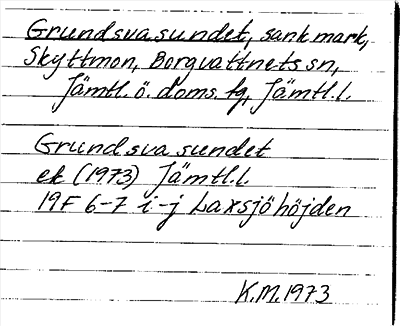 Grundsvasundet, sank mark,
Skyttmon, Borgvattnets sn,
Jämtl. ö. doms. fg, Jämtl. l.
Grundsvasundet
ek (1973) Jämtl. l.
19F 6-7 i-j Laxsjöhöjden
K.M. 1973